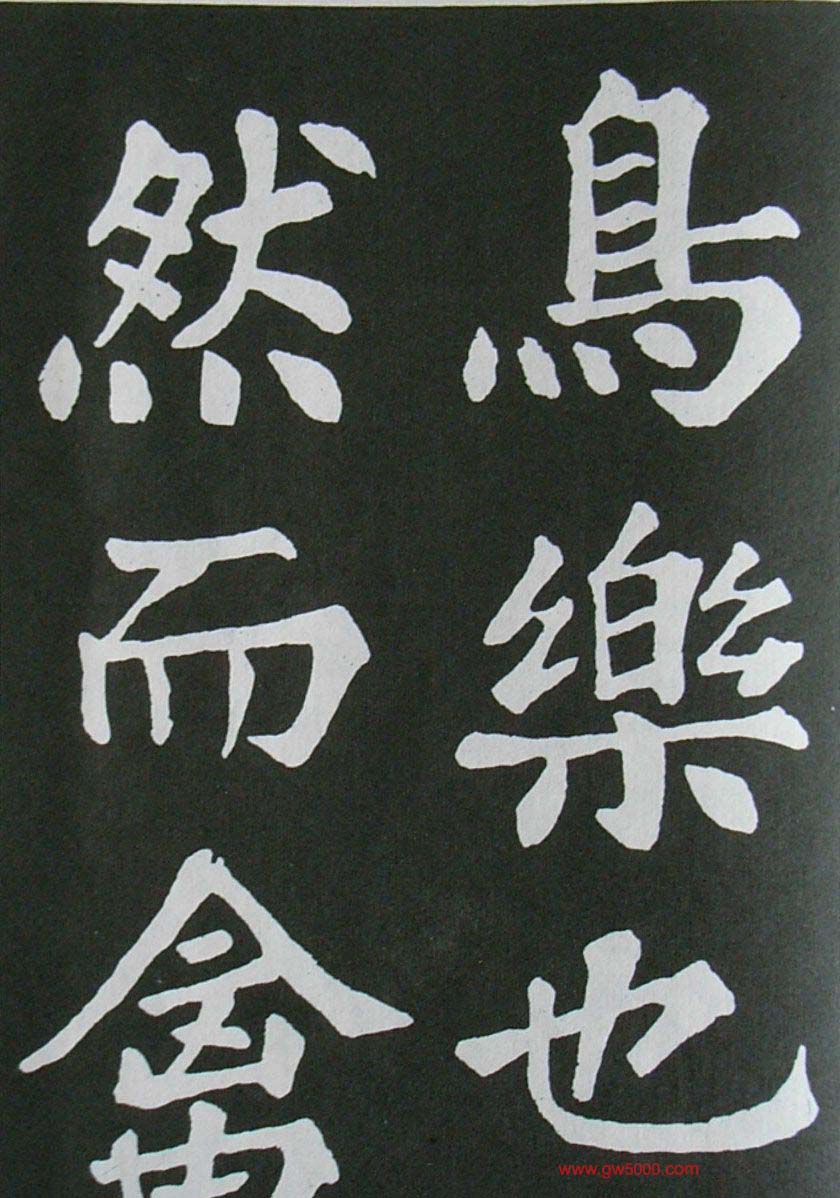 鳥樂也
然而禽
www.gw5000.com